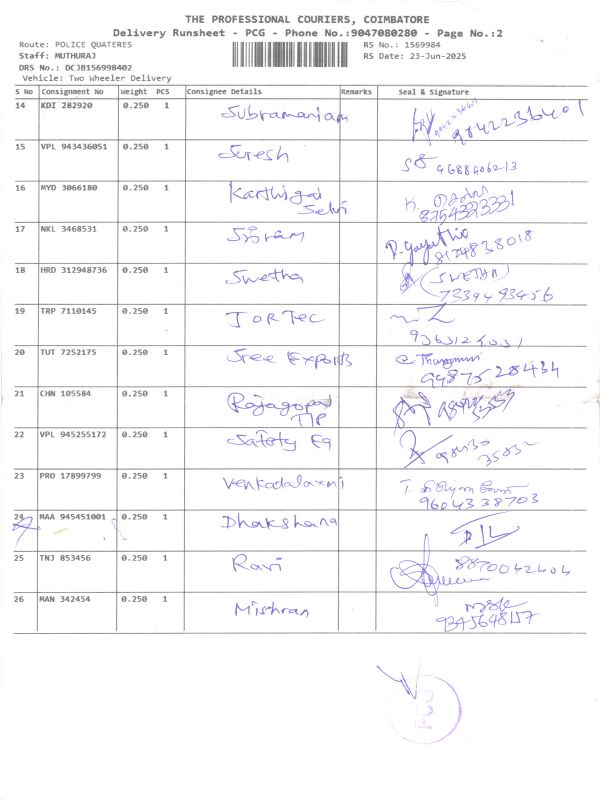 THE PROFESSIONAL COURIERS, COIMBATORE
Delivery Runsheet - PCG - Phone No.:9047080280 - Page No.:2
Route: POLICE QUATERES RS No.: 1569984
Staff: MUTHURAJ RS Date: 23-Jun-2025
DRS No.: DCJB156998402
Vehicle: Two Wheeler Delivery
S No Consignment No Weight PCS Consignee Details Remarks Seal & Signature
14 KDI 282920 0.250 1 Subramaniam 9842236401
15 VPL 943436051 0.250 1 Suresh
16 MYD 3066180 0.250 1 Karthigai
Selvi
17 NKL 3468531 0.250 1 Sriram D. Gayathri
8124838018
18 HRD 312948736 0.250 1 Swetha (SWETHA)
7339493456
19 TRP 7110145 0.250 1 JORTEC
20 TUT 7252175 0.250 1 Sree Exports
9487528434
21 CHN 105584 0.250 1 Rajagopal
22 VPL 945255172 0.250 1 Safety Eq
23 PRO 17899799 0.250 1 Venkadalaxmi
9604338703
24 MAA 945451001 0.250 1 Dhakshana
25 TNJ 853456 0.250 1 Ravi 8870042404
26 MAN 342454 0.250 1 Mishran
9345648157
PCG